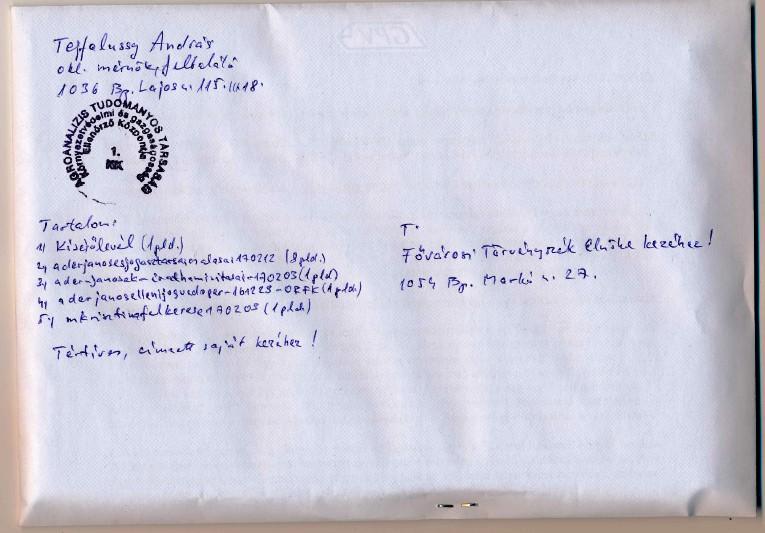 Tejfalussy András
okl. mérnök, feltaláló
1036 Bp. Lajos u. 115. III.18.
AGROANALÍZIS TUDOMÁNYOS TÁRSASÁG
Környezetvédelmi és gazdaságossági
Ellenőrző Központja
1.
Tartalom:
1) Kísérőlevél (1 pld.)
2) aderjanosesjogasztarsai 170212 (8 pld.)
3) ader-janosek- 170203 (1 pld)
4) aderjanosellenijogvedoper-161223-ORFK (1 pld)
5.) 170203 (1 pld.)
Tértives, címzett saját kezéhez!
T.
Fővárosi Törvényszék Elnöke kezéhez!
1054 Bp. Markó u. 27.